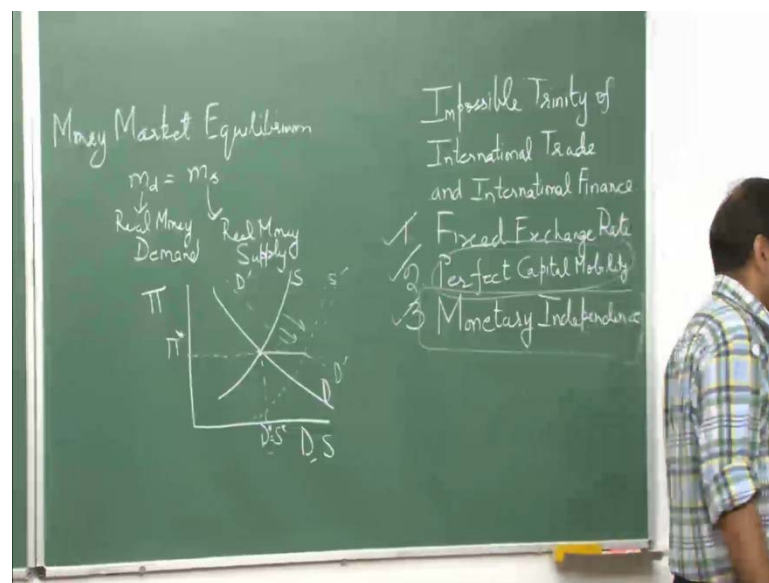 Money Market Equilibrium
md = ms
Real Money
Demand
Real Money
Supply
D' S S'
Π
Π*
D'
D
D*=S* D, S
Impossible Trinity of
International Trade
and International Finance
1. Fixed Exchange Rate
2. Perfect Capital Mobility
3 Monetary Independence